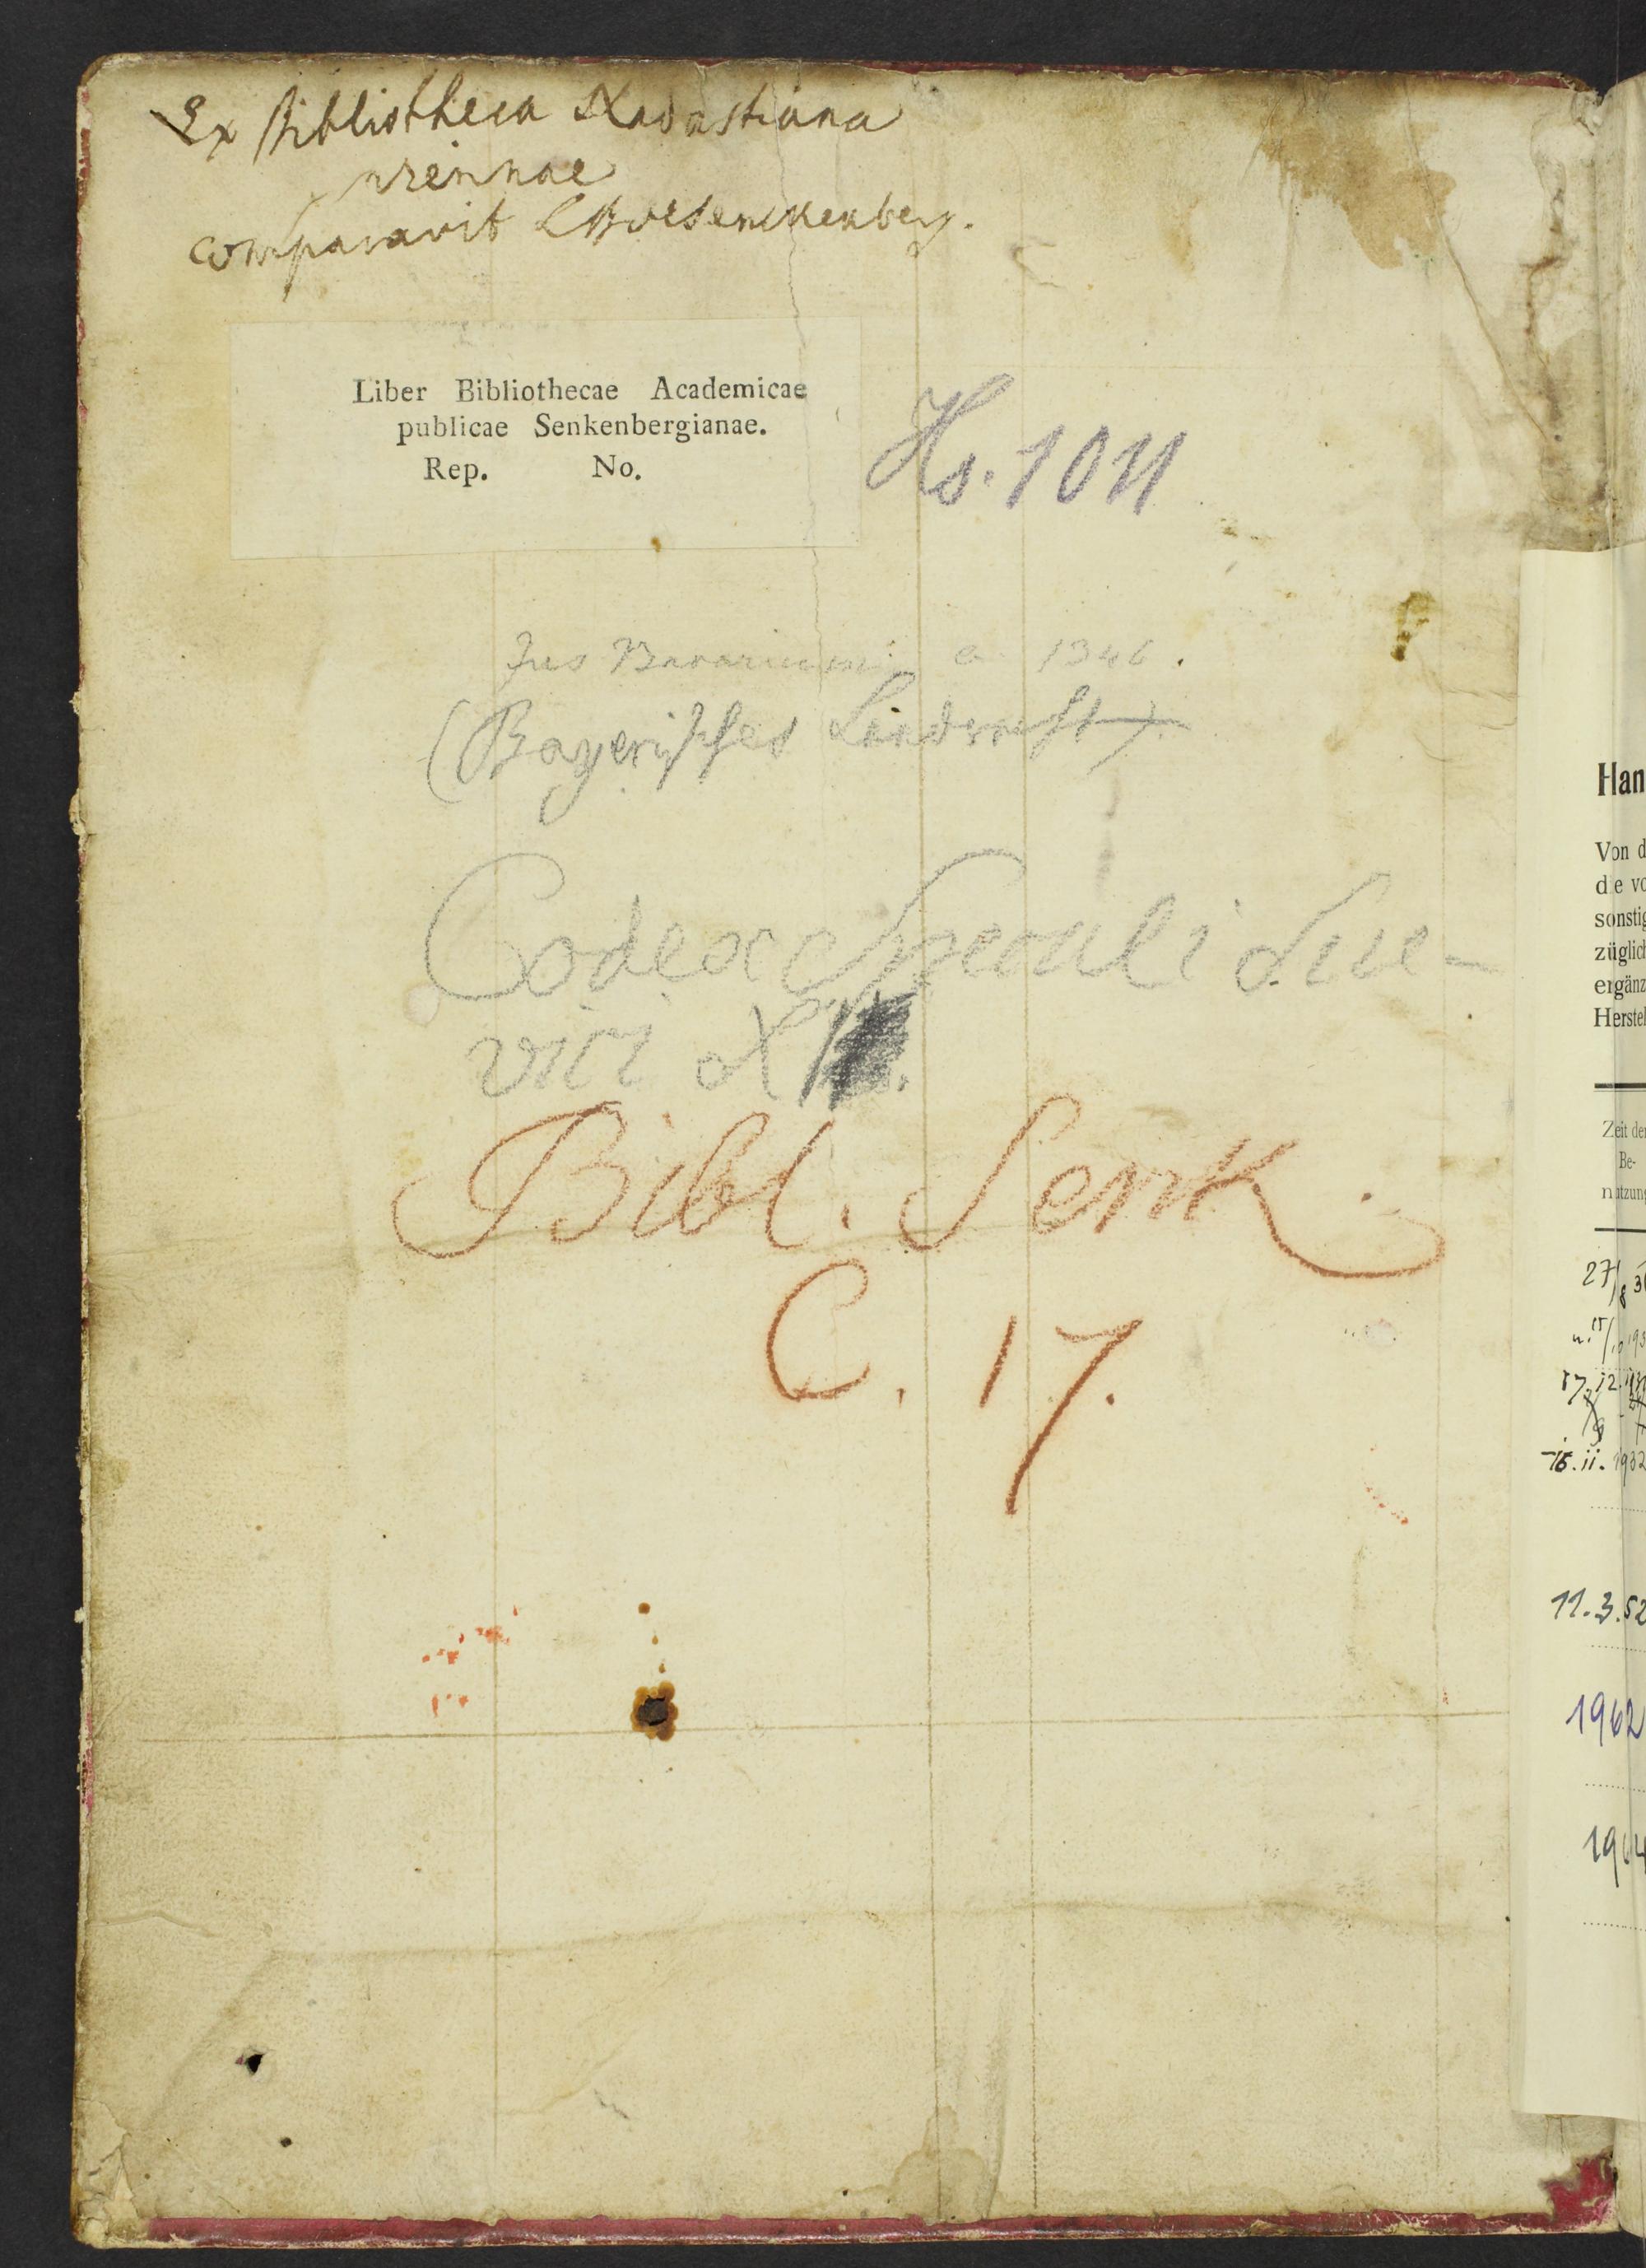 Ex Bibliotheca Nadastiana
viennae
comparavit CBvesenckenberg.
Liber Bibliothecae Academicae
publicae Senkenbergianae.
Rep. No.
Hs. 1011
Jus Bavaricum a 1346.
(Bayerisches Landrecht)
Codex Speculi Sue-
vici
Bibl. Senk.
C. 17.
Han
Von d
die vo
sonstig
züglich
ergänz
Herstel
Zeit der
Be-
nutzung
27/8 3
17.12.
15.11.1932
11.3.52
1962
1964